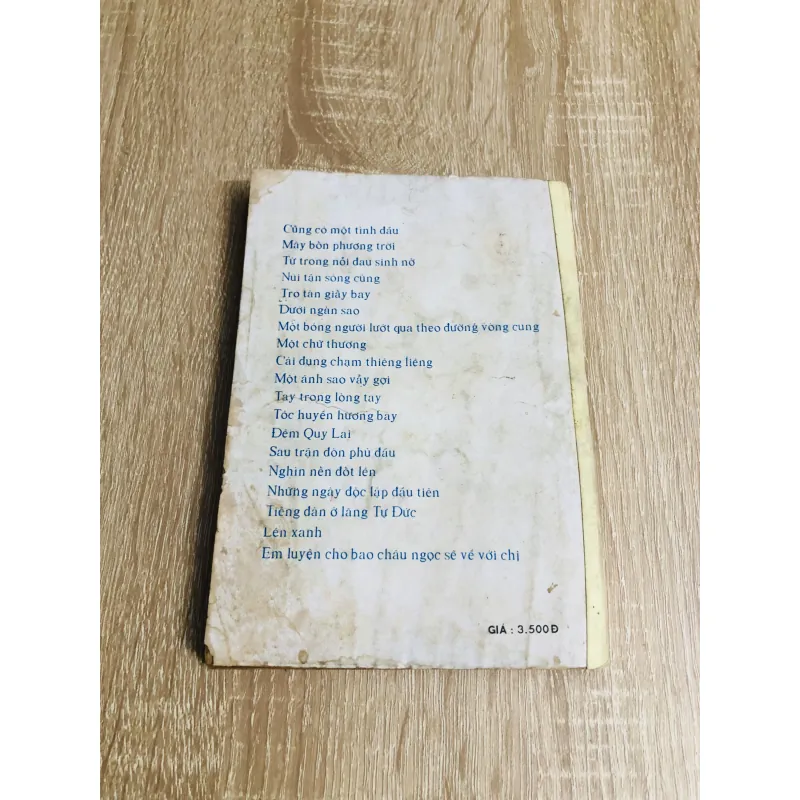 Cũng có một tình đầu
Mây bốn phương trời
Từ trong nỗi đau sinh nở
Núi tận sông cùng
Tro tàn giấy bay
Dưới ngàn sao
Một bóng người lướt qua theo đường vòng cung
Một chữ thương
Cái đụng chạm thiêng liêng
Một ánh sao vẫy gọi
Tay trong lòng tay
Tóc huyền hương bay
Đêm Quy Lai
Sau trận đòn phủ đầu
Nghìn nến đốt lên
Những ngày độc lập đầu tiên
Tiếng đàn ở lăng Tự Đức
Lên xanh
Em luyện cho bao châu ngọc sẽ về với chị
GIÁ : 3.500Đ